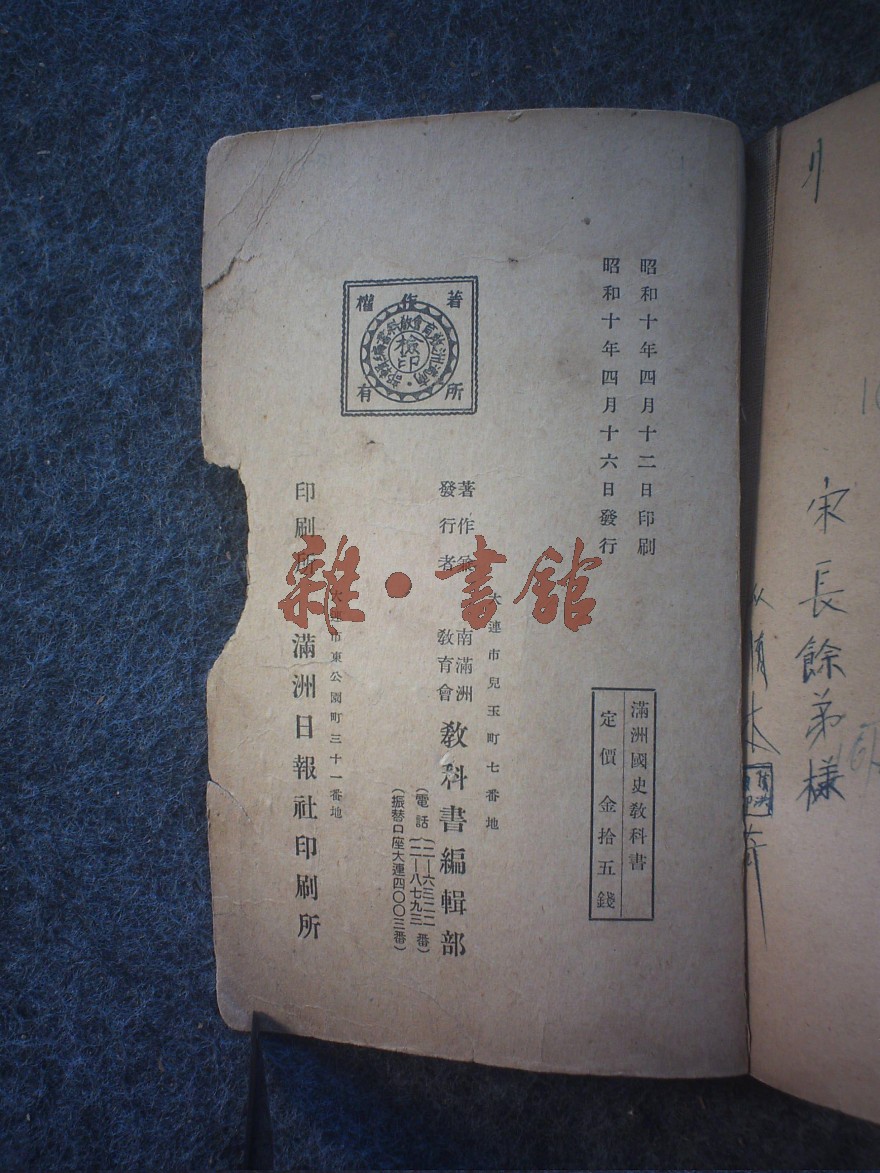 昭和十年四月十二日印刷
昭和十年四月十六日發行
滿洲國史教科書
定價金拾五錢
著作權所有
檢印
大連市兒玉町七番地
著作兼
發行者
南滿洲
教育會
教科書編輯部
(電話(二一六三二二
二一八七九三番)
(振替口座大連四〇〇三番)
大連市東公園町三十一番地
印刷所 滿洲日報社印刷所
雜·書館
宋長餘弟樣